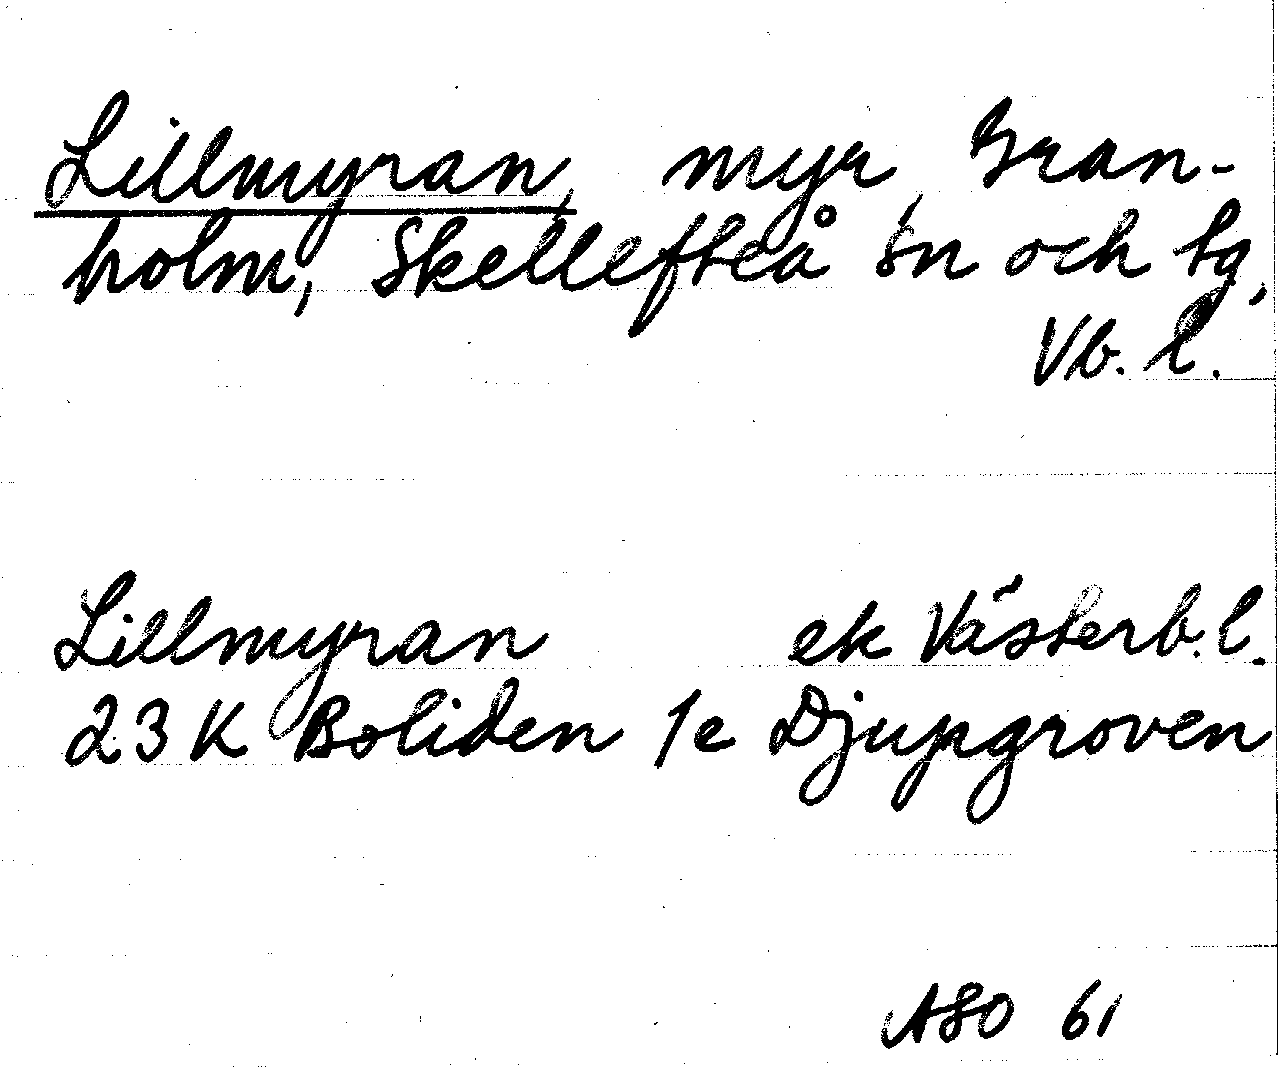 Lillmyran, myr, Gran-
holm, Skellefteå sn och tg,
Vb. l.
Lillmyran ek Västerb. l.
23 K Boliden 1e Djupgroven
ASO 61